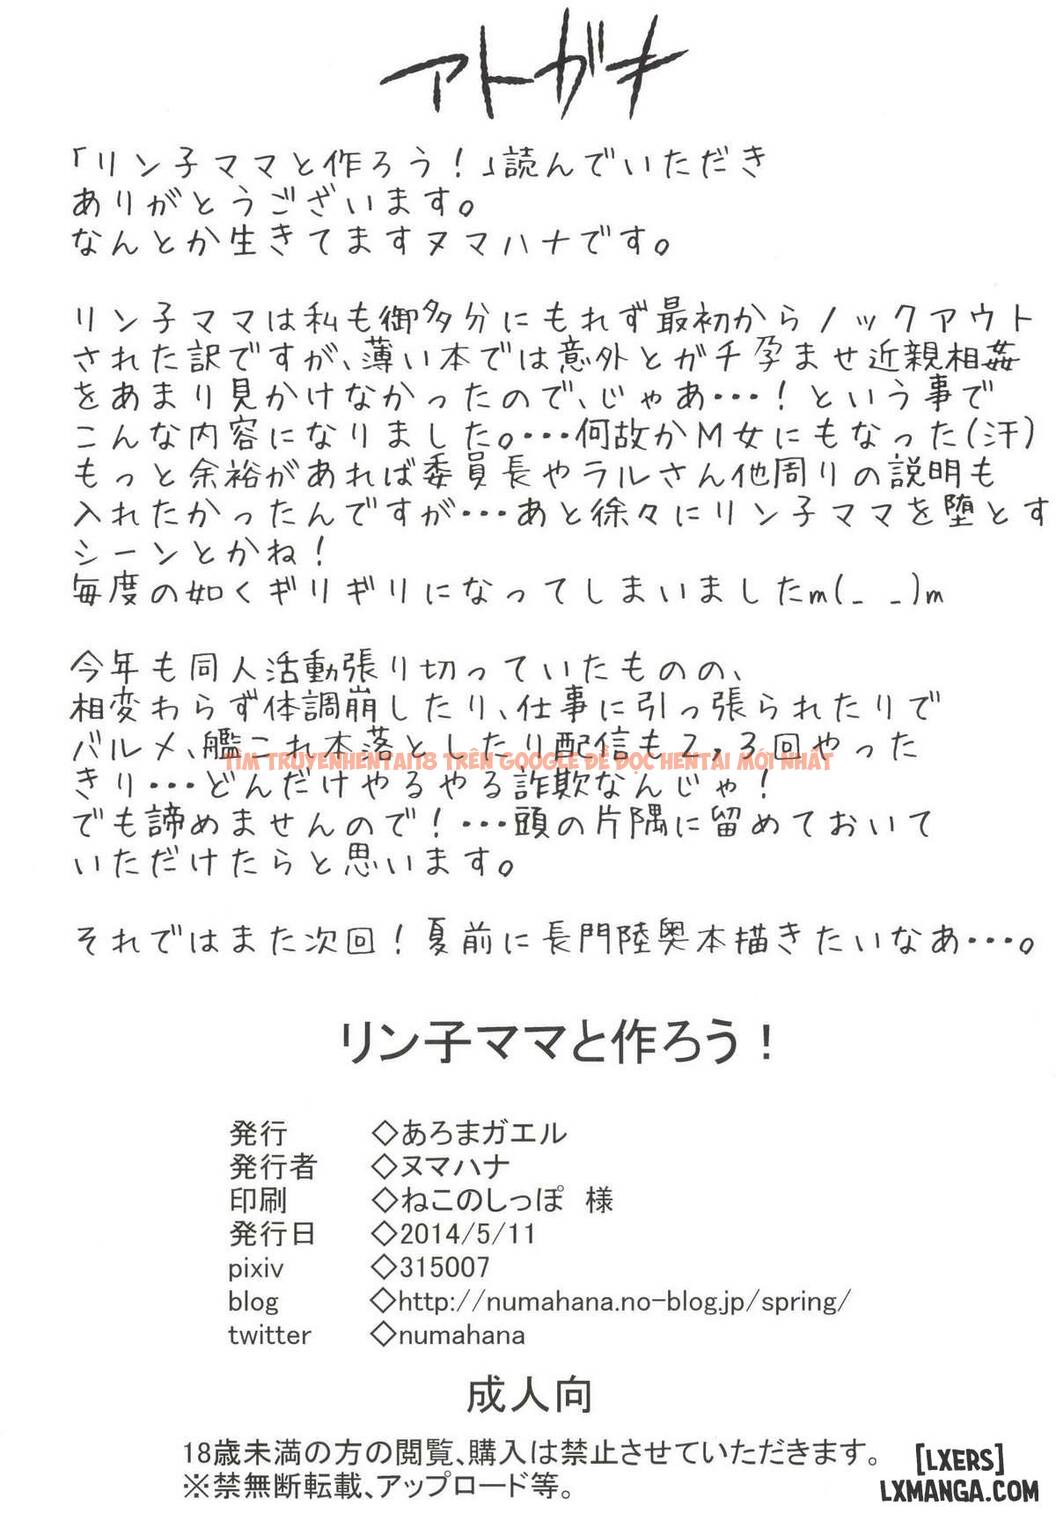 アトガキ
「リン子ママと作ろう！」読んでいただき
ありがとうございます。
なんとか生きてますヌマハナです。
リン子ママは私も御多分にもれず最初からノックアウト
された訳ですが、薄い本では意外とガチ孕ませ近親相姦
をあまり見かけなかったので、じゃあ・・・！という事で
こんな内容になりました。・・・何故かM女にもなった(汗)
もっと余裕があれば委員長やラルさん他周りの説明も
入れたかったんですが・・・あと徐々にリン子ママを堕とす
シーンとかね！
毎度の如くギリギリになってしまいましたm(_ _)m
今年も同人活動張り切っていたものの、
相変わらず体調崩したり、仕事に引っ張られたりで
バルメ、艦これ本落としたり配信も2,3回やった
TÌM TRUYENHENTAI18 TRÊN GOOGLE ĐỂ ĐỌC HENTAI MỚI NHẤT
きり・・・どんだけやるやる詐欺なんじゃ！
でも諦めませんので！・・・頭の片隅に留めておいて
いただけたらと思います。
それではまた次回！夏前に長門陸奥本描きたいなあ・・・。
リン子ママと作ろう！
発行 ◇あろまガエル
発行者 ◇ヌマハナ
印刷 ◇ねこのしっぽ 様
発行日 ◇2014/5/11
pixiv ◇315007
blog ◇http://numahana.no-blog.jp/spring/
twitter ◇numahana
成人向
18歳未満の方の閲覧、購入は禁止させていただきます。
※禁無断転載、アップロード等。
[LXERS]
LXMANGA.COM